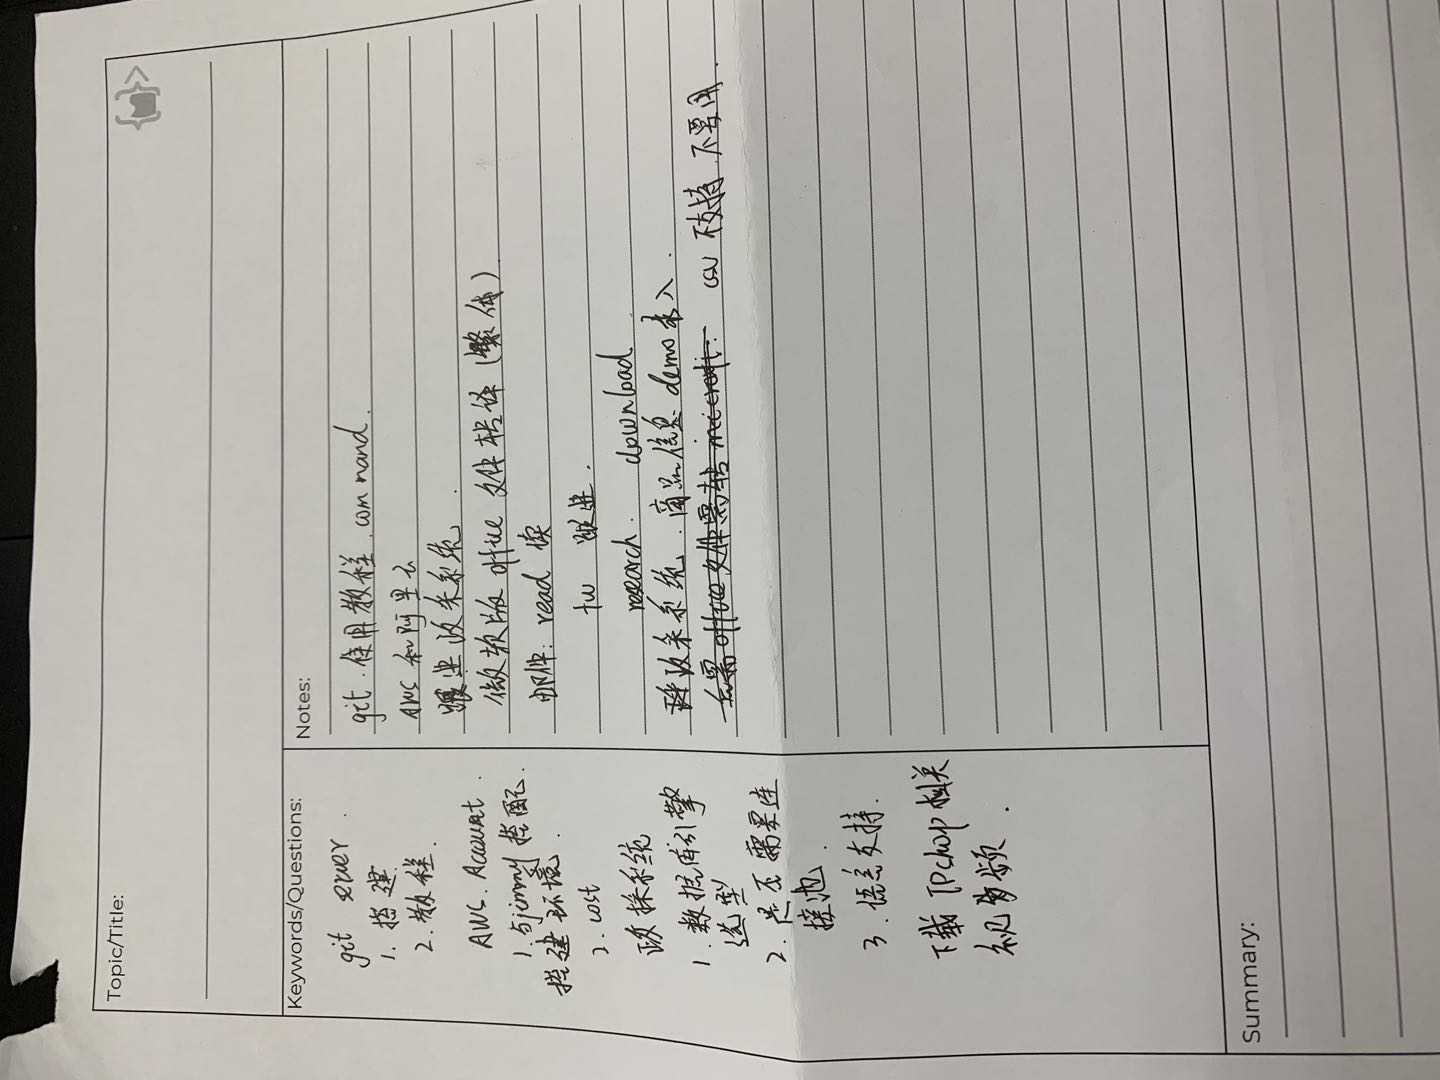 Topic/Title:
Keywords/Questions:
git sever
1. 搭建
2. 教程
AWS. Account.
1. 与jimmy 搭配.
搭建环境.
2. cost
政採系统
1. 数据库引擎
选型
2. 是否需要连
接池.
3. 语言支持.
下载 相关
视频.
Notes:
git. 使用教程. command.
AWS 和阿里云
跟进政采系统.
微软版 office 文件转译 (繁体)
邮件: read 读
tw 跟进.
research. download
政采系统. 商品信息 demo 录入.
office 文件需转 csv 不支持.不要用.
Summary: